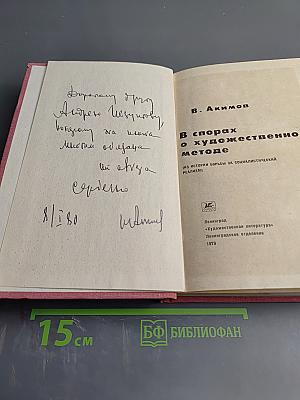 Дорогому другу
Андрею
от автора
сердечно
8/I 80
В. Акимов
В спорах
о художественном
методе
(ИЗ ИСТОРИИ БОРЬБЫ ЗА СОЦИАЛИСТИЧЕСКИЙ
РЕАЛИЗМ)
Ленинград
«Художественная литература»
Ленинградское отделение
1979
15 см
БФ БИБЛИОФАН